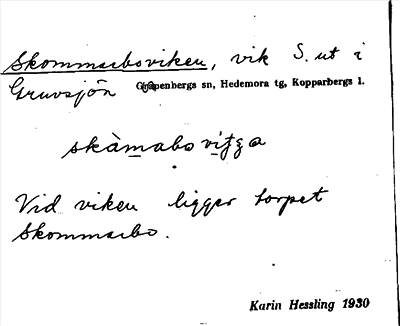 Skommarboviken, vik S. ut i
Gruvsjön Garpenbergs sn, Hedemora tg, Kopparbergs l.
skàmabo
Vid viken ligger torpet
Skommarbo.
Karin Hessling 1930